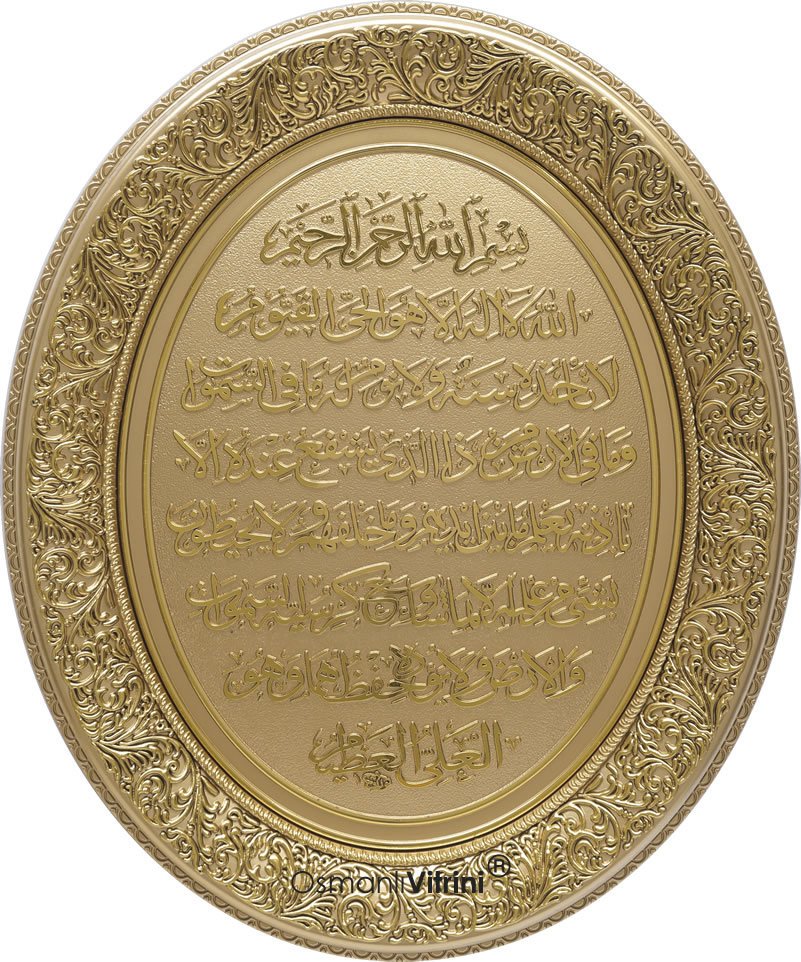 بسم الله الرحمن الرحيم
الله لا اله الا هو الحي القيوم
لا تأخذه سنة ولا نوم له ما في السموات
وما في الارض من ذا الذي يشفع عنده الا
باذنه يعلم ما بين ايديهم وما خلفهم ولا يحيطون
بشيء من علمه الا بما شاء وسع كرسيه السموات
والارض ولا يؤده حفظهما وهو
العلي العظيم
OsmanlıVitrini®